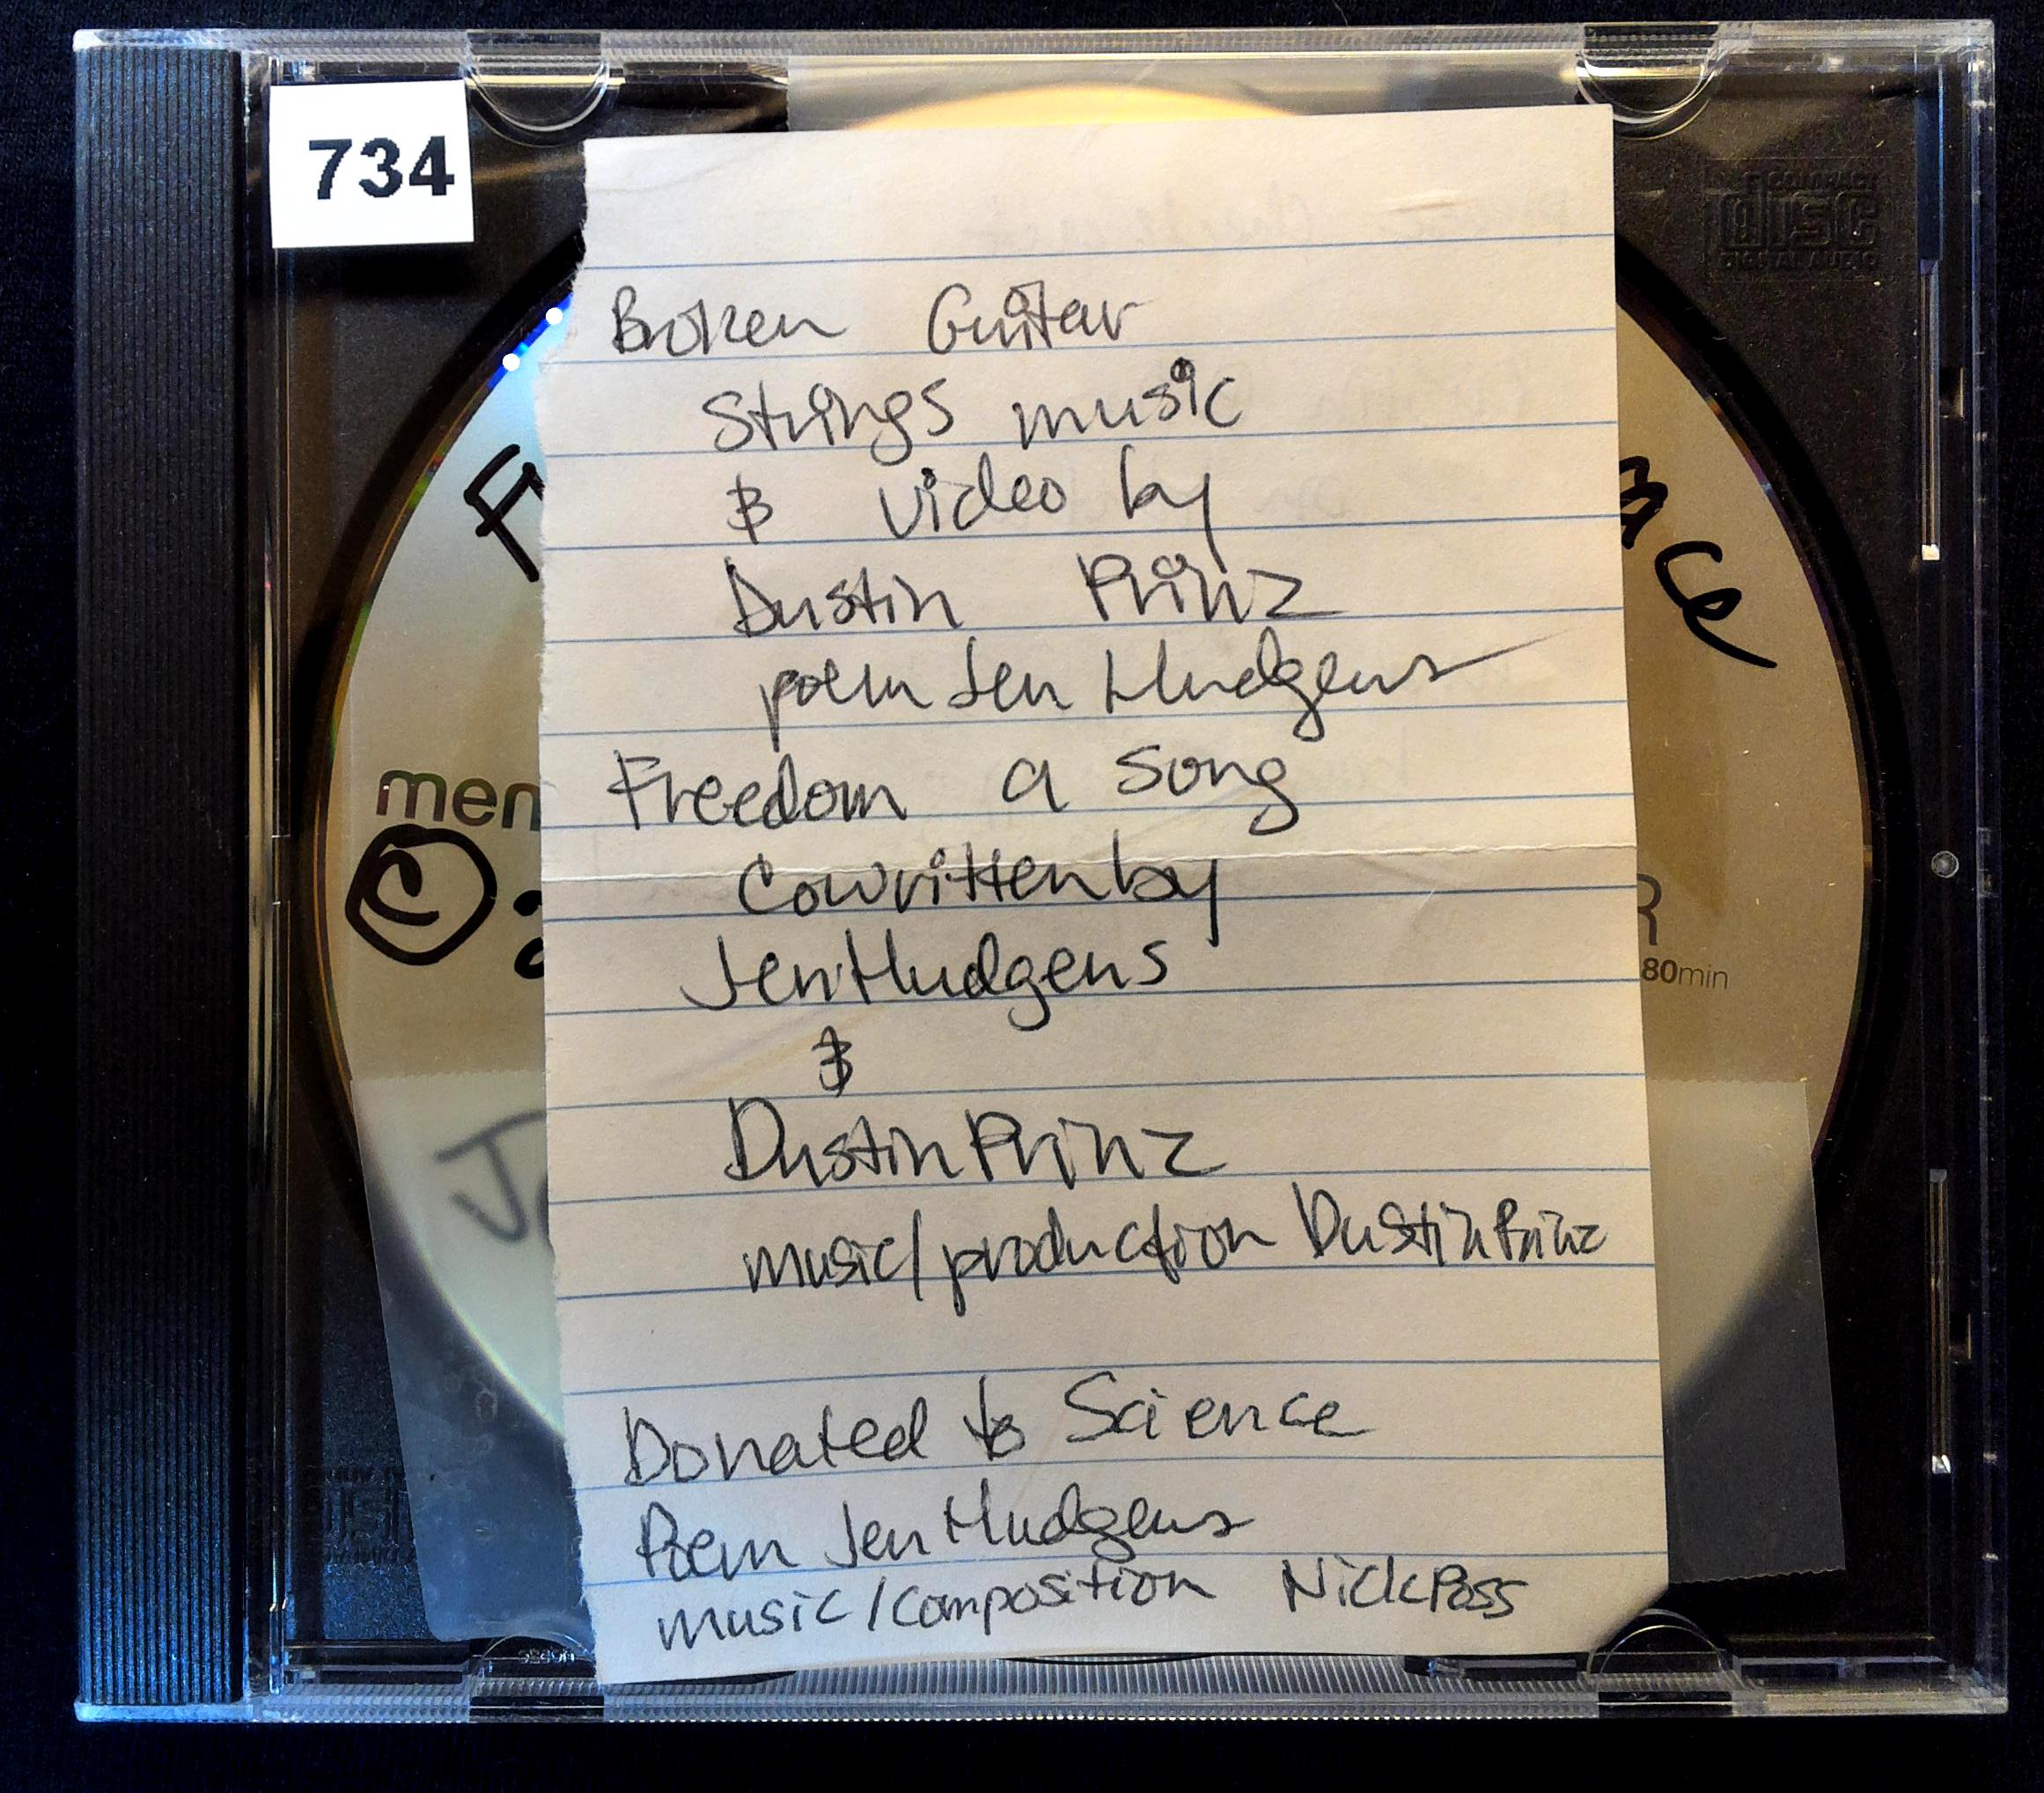 734
COMPACT
DISC
DIGITAL AUDIO
Broken Guitar
Strings music
& video by
Dustin Prinz
poem Jen Hudgens
Freedom a song
Cowritten by
Jen Hudgens
&
Dustin Prinz
music/production Dustin Prinz
Donated to Science
Poem Jen Hudgens
music/composition Nick Poss
80min